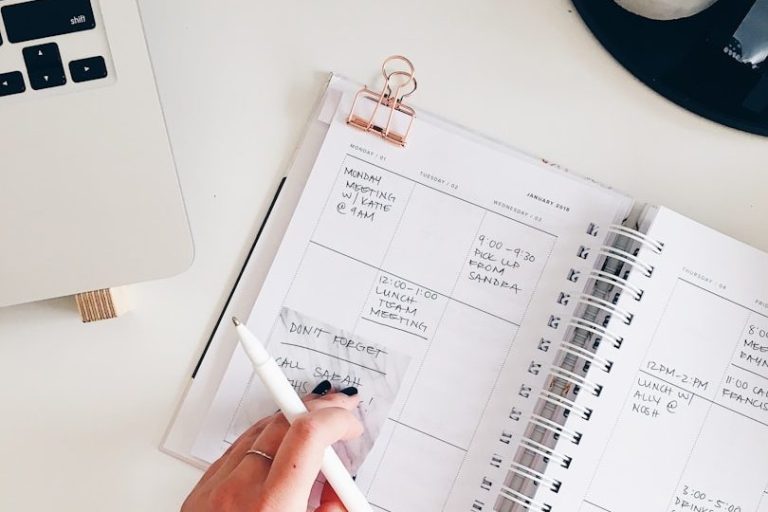 shift
JANUARY 2018
MONDAY / 01
TUESDAY / 02
WEDNESDAY / 03
THURSDAY / 04
MONDAY
MEETING
W/ KATIE
@ 9AM
9:00-9:30
PICK UP
FROM
SANDRA
12:00-1:00
LUNCH
TEAM
MEETING
DON'T FORGET
CALL SARAH
12PM-2PM
LUNCH W/
ALLY @
NOSH
11:00
CALL
FRANCIS
3:00-5:00